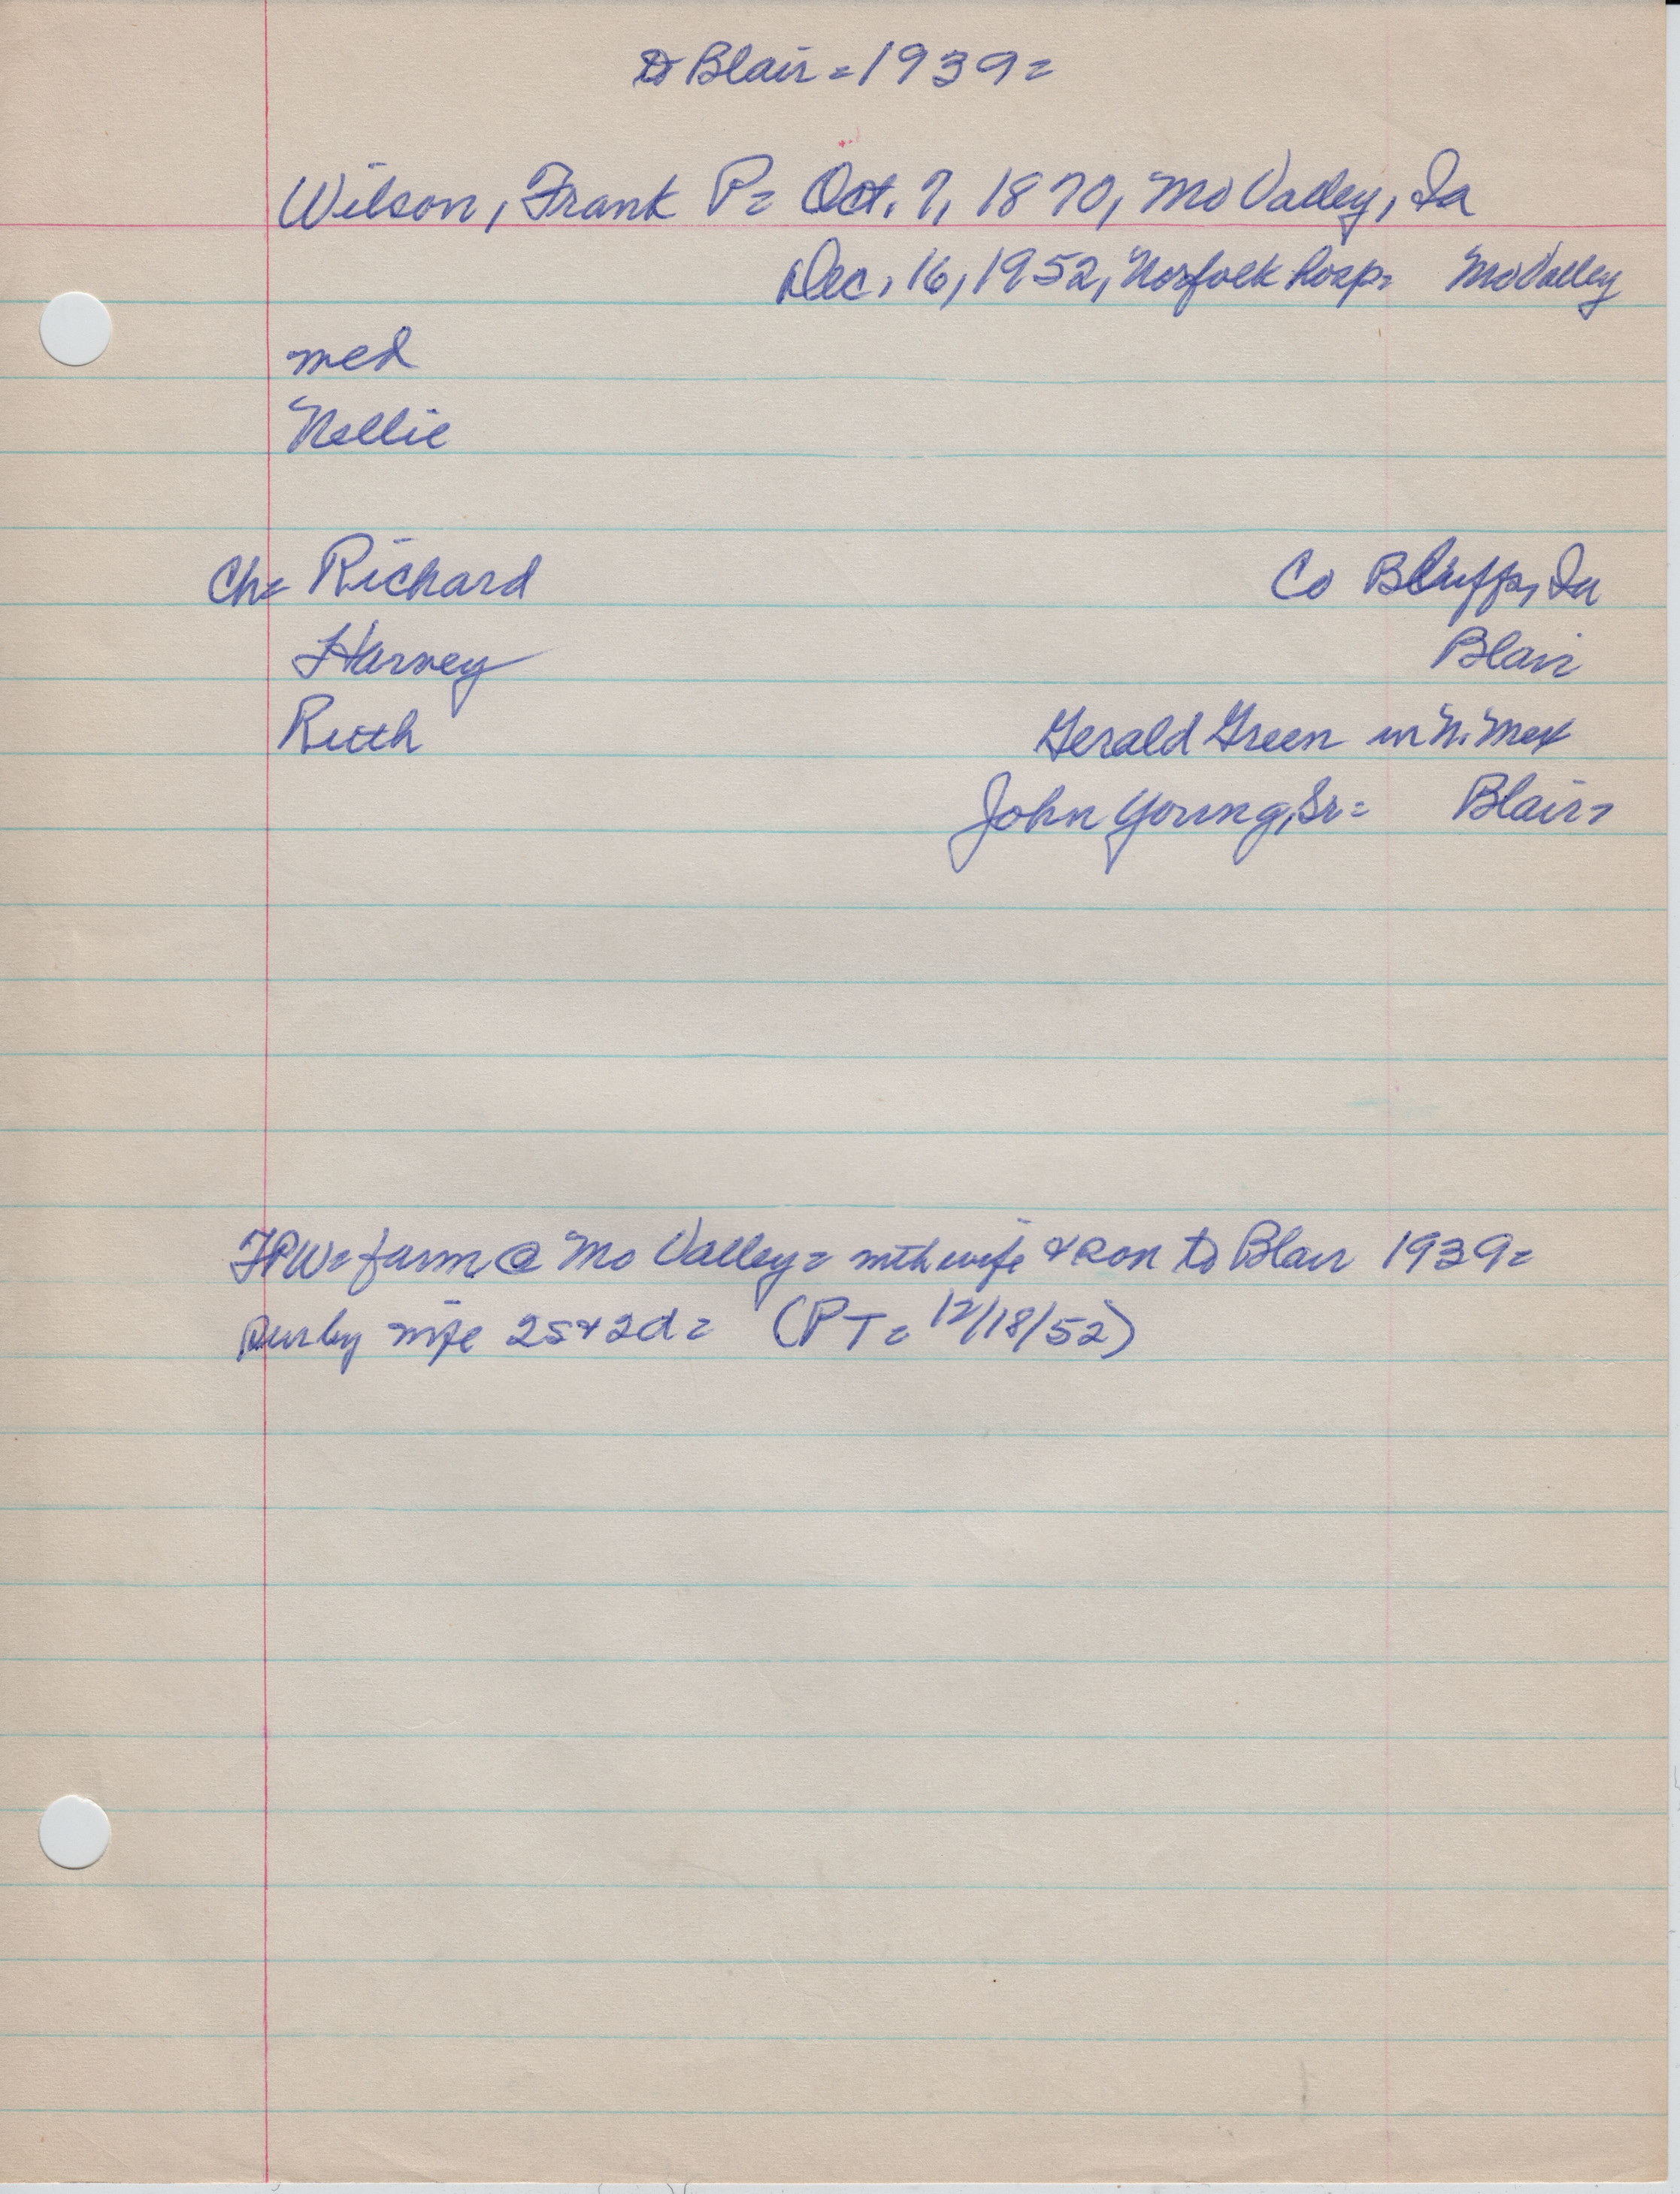 to Blair = 1939 =
Wilson, Frank P = Oct. 7, 1870, Mo Valley, Ia
Dec. 16, 1952, Norfolk hosp = Mo Valley
med
Nellie
Ch = Richard Co Bluffs, Ia
Harvey Blair
Ruth Gerald Green in N. Mex
John Young, Sr = Blair =
FPW = farm @ Mo Valley = with wife & son to Blair 1939 =
Sur by wife 2s & 2d = (PT = 12/18/52)